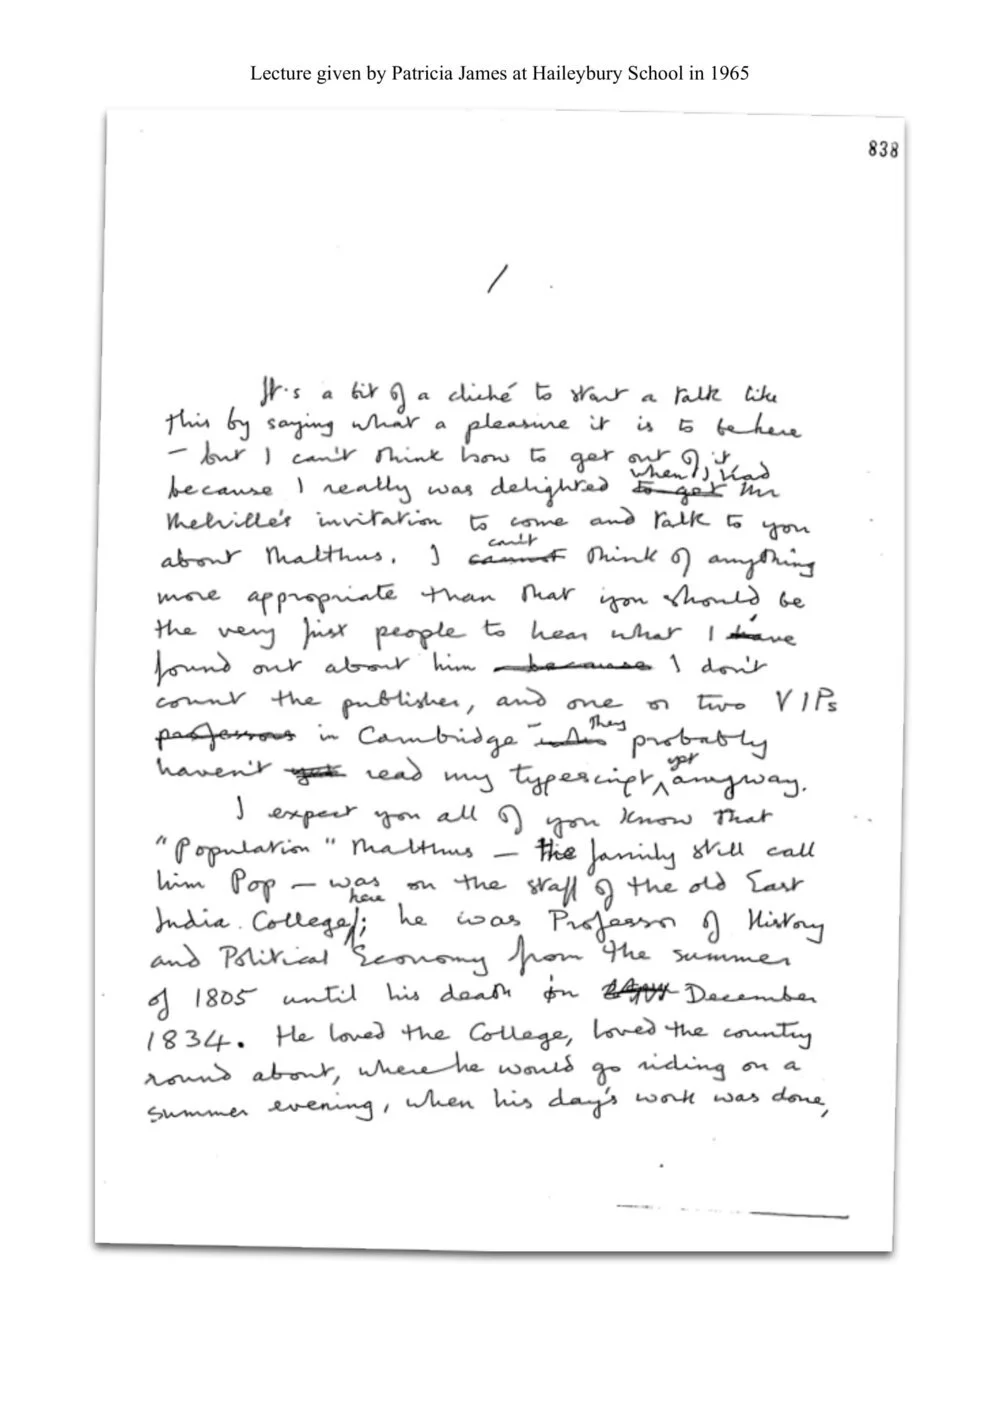 Lecture given by Patricia James at Haileybury School in 1965
838
1
It's a bit of a cliché to start a talk like
this by saying what a pleasure it is to be here
– but I can't think how to get out of it
because I really was delighted to get when I had Mr
Melville's invitation to come and talk to you
about Malthus. I cannot can't think of anything
more appropriate than that you should be
the very first people to hear what I have
found out about him – because I don't
count the publisher, and one or two VIPs
professors in Cambridge – who They probably
haven't yet read my typescript yet anyway.
I expect you all of you know that
"Population" Malthus – the family still call
him Pop – was on the staff of the old East
India College here; he was Professor of History
and Political Economy from the summer
of 1805 until his death in December
1834. He loved the College, loved the country
round about, where he would go riding on a
summer evening, when his day's work was done,